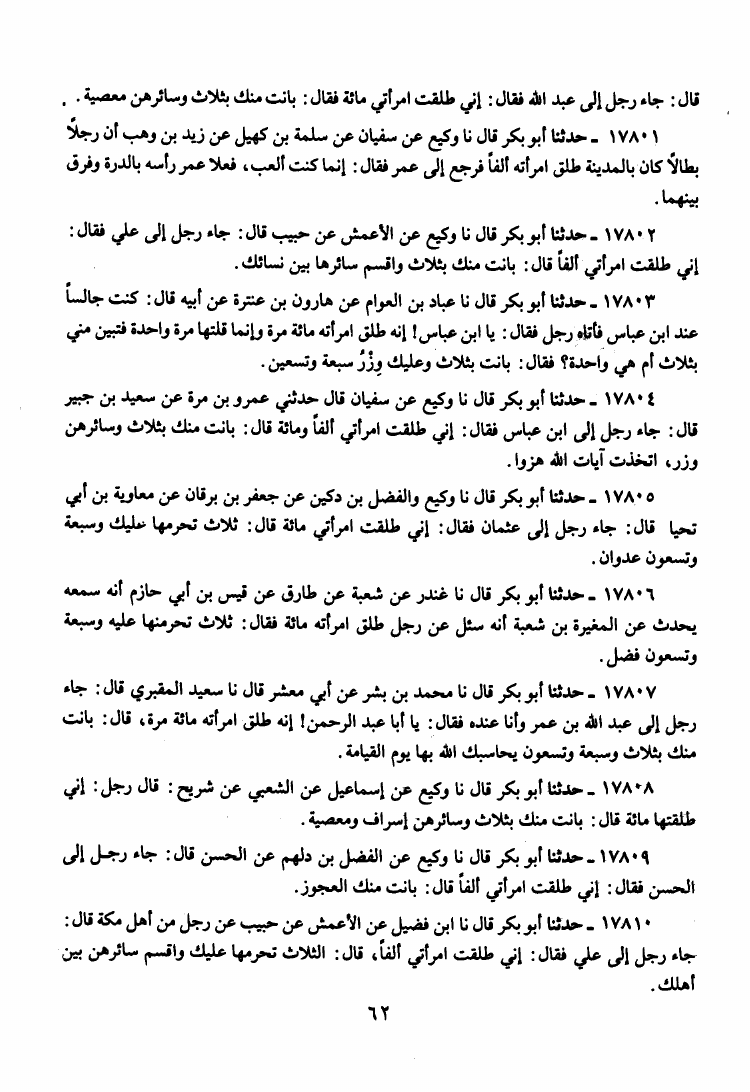 قال: جاء رجل إلى عبد الله فقال: إني طلقت امرأتي مائة فقال: بانت منك بثلاث وسائرهن معصية.
١٧٨٠١ ـ حدثنا أبو بكر قال نا وكيع عن سفيان عن سلمة بن كهيل عن زيد بن وهب أن رجلاً
بطالاً كان بالمدينة طلق امرأته ألفاً فرجع إلى عمر فقال: إنما كنت ألعب، فعلا عمر رأسه بالدرة وفرق
بينهما.
١٧٨٠٢ ـ حدثنا أبو بكر قال نا وكيع عن الأعمش عن حبيب قال: جاء رجل إلى علي فقال:
إني طلقت امرأتي ألفاً قال: بانت منك بثلاث واقسم سائرها بين نسائك.
١٧٨٠٣ ـ حدثنا أبو بكر قال نا عباد بن العوام عن هارون بن عنترة عن أبيه قال: كنت جالساً
عند ابن عباس فأتاه رجل فقال: يا ابن عباس! إنه طلق امرأته مائة مرة وإنما قلتها مرة واحدة فتبين مني
بثلاث أم هي واحدة؟ فقال: بانت بثلاث وعليك وِزْرُ سبعة وتسعين.
١٧٨٠٤ ـ حدثنا أبو بكر قال نا وكيع عن سفيان قال حدثني عمرو بن مرة عن سعيد بن جبير
قال: جاء رجل إلى ابن عباس فقال: إني طلقت امرأتي ألفاً ومائة قال: بانت منك بثلاث وسائرهن
وزر، اتخذت آيات الله هزوا.
١٧٨٠٥ ـ حدثنا أبو بكر قال نا وكيع والفضل بن دكين عن جعفر بن برقان عن معاوية بن أبي
تحيا قال: جاء رجل إلى عثمان فقال: إني طلقت امرأتي مائة قال: ثلاث تحرمها عليك وسبعة
وتسعون عدوان.
١٧٨٠٦ ـ حدثنا أبو بكر قال نا غندر عن شعبة عن طارق عن قيس بن أبي حازم أنه سمعه
يحدث عن المغيرة بن شعبة أنه سئل عن رجل طلق امرأته مائة فقال: ثلاث تحرمنها عليه وسبعة
وتسعون فضل.
١٧٨٠٧ ـ حدثنا أبو بكر قال نا محمد بن بشر عن أبي معشر قال نا سعيد المقبري قال: جاء
رجل إلى عبد الله بن عمر وأنا عنده فقال: يا أبا عبد الرحمن! إنه طلق امرأته مائة مرة، قال: بانت
منك بثلاث وسبعة وتسعون يحاسبك الله بها يوم القيامة.
١٧٨٠٨ ـ حدثنا أبو بكر قال نا وكيع عن إسماعيل عن الشعبي عن شريح: قال رجل: إني
طلقتها مائة قال: بانت منك بثلاث وسائرهن إسراف ومعصية.
١٧٨٠٩ ـ حدثنا أبو بكر قال نا وكيع عن الفضل بن دلهم عن الحسن قال: جاء رجل إلى
الحسن فقال: إني طلقت امرأتي ألفاً قال: بانت منك العجوز.
١٧٨١٠ ـ حدثنا أبو بكر قال نا ابن فضيل عن الأعمش عن حبيب عن رجل من أهل مكة قال:
جاء رجل إلى علي فقال: إني طلقت امرأتي ألفاً، قال: الثلاث تحرمها عليك واقسم سائرهن بين
أهلك.
٦٢